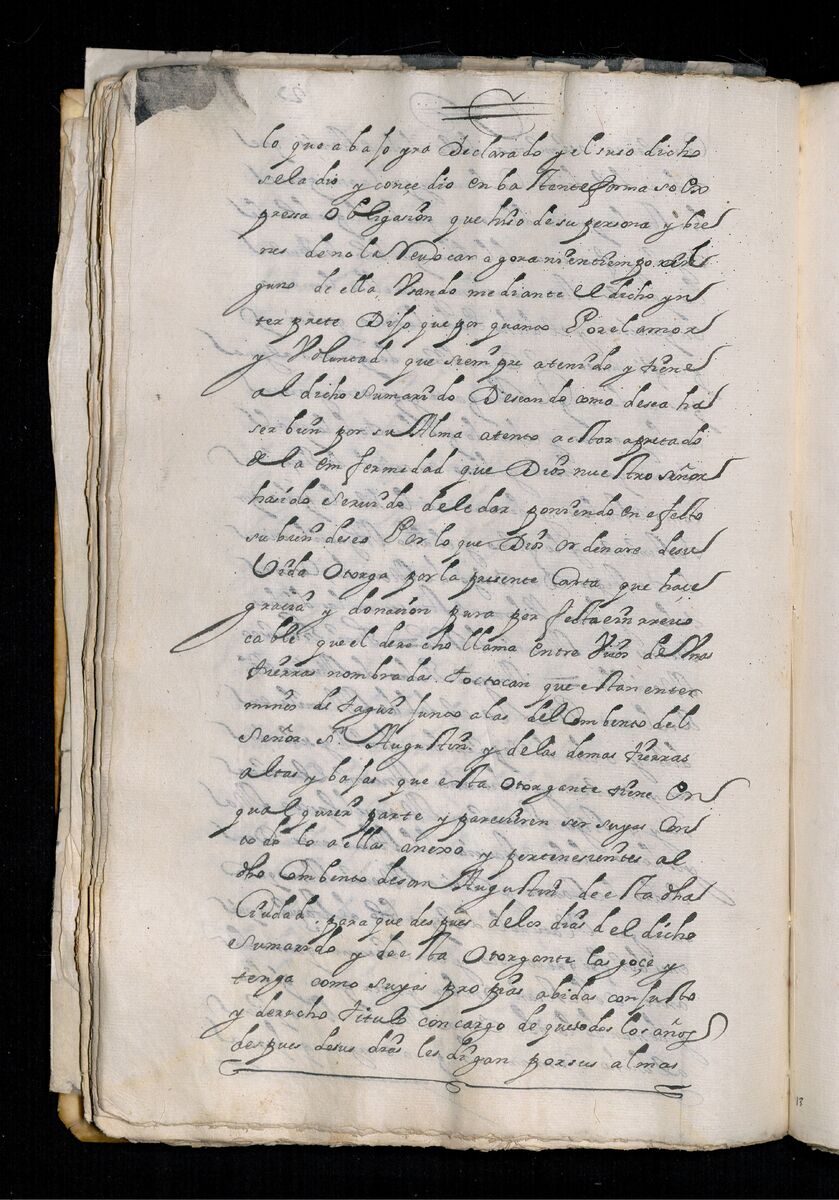 lo que abaxo yra Declarado y el suso dicho
se la dio y conçedio en bastante forma so ex
pressa obligasion que hiso de su persona y bie
nes de no la Revocar agora ni en tiempo nin
guno de ella Usando mediante el dicho yn
terprete Dijo que por quanto Por el amor
y Voluntad que siempre a tenido y tiene
al dicho su marido Deseando como desea ha
ser bien por su Alma atento a estar apretado
de la emfermedad que Dios nuestro señor
ha sido seruido de le dar poniendo en efecto
su buen deseo Por lo que Dios ordenare de su
Vida otorga por la presente Carta que haçe
gracia y donacion pura perfecta e yrrevo
cable que el derecho llama entre Viuos de Unas
tierras nombradas toctocan que estan en ter
minos de tagui junto a las del Combento del
señor s.n Augustin y de las demas tierras
altas y bajas que esta otorgante tiene en
qual quier parte y parecieren ser suyas con
todo lo a ellas anexo y pertenesientes al
dho Combento de san Augustin de esta dha
Ciudad para que despues de los dias del dicho
su marido y de esta otorgante las goçe y
tenga como suyas propias abidas con justo
y derecho titulo con cargo de que todos los años
despues de sus dias les digan por sus almas
13